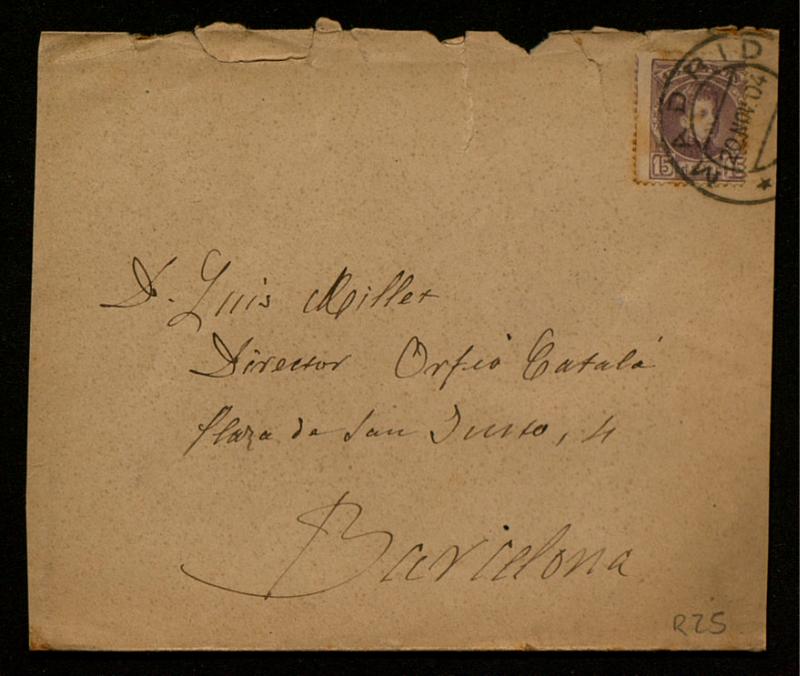 MADRID
20 NOV 04
15
D. Luis Millet
Director Orfeó Catalá
Plaza de San Justo, 4
Barcelona
R25